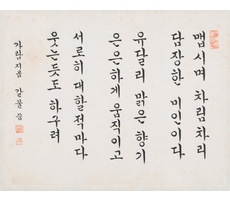 맵시며 차림차리
담장한 미인이다
유달리 맑은 향기
은은하게 움직이고
서로히 대할적마다
웃는듯도 하구려
가람지음 갈물 씀